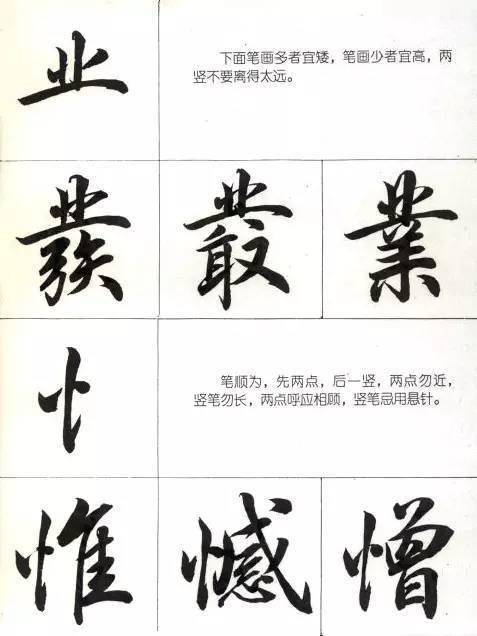 业
下面笔画多者宜矮，笔画少者宜高，两
竖不要离得太远。
叢 業
忄
笔顺为，先两点，后一竖，两点勿近，
竖笔勿长，两点呼应相顾，竖笔忌用悬针。
惟 憾 憎